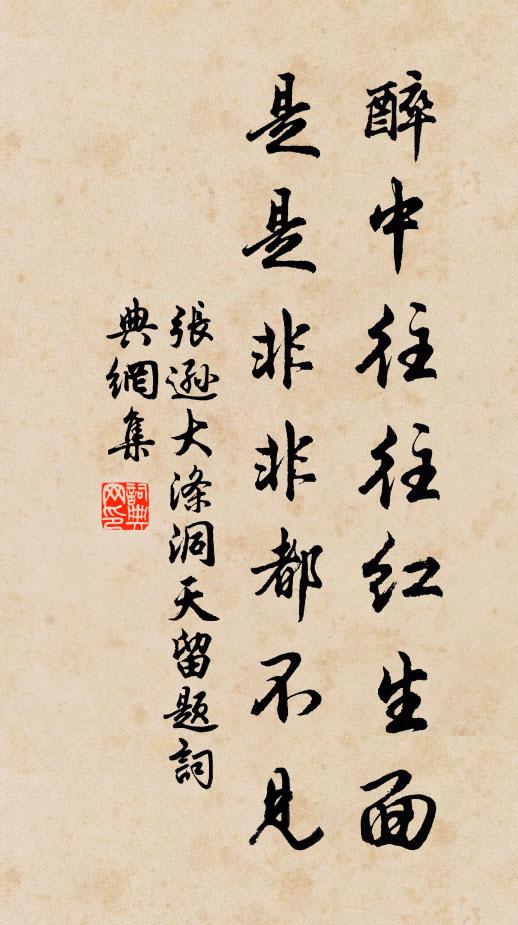 醉中往往红生面
是是非非都不见
張遜大涤洞天留题詞
典網集
詞典网印